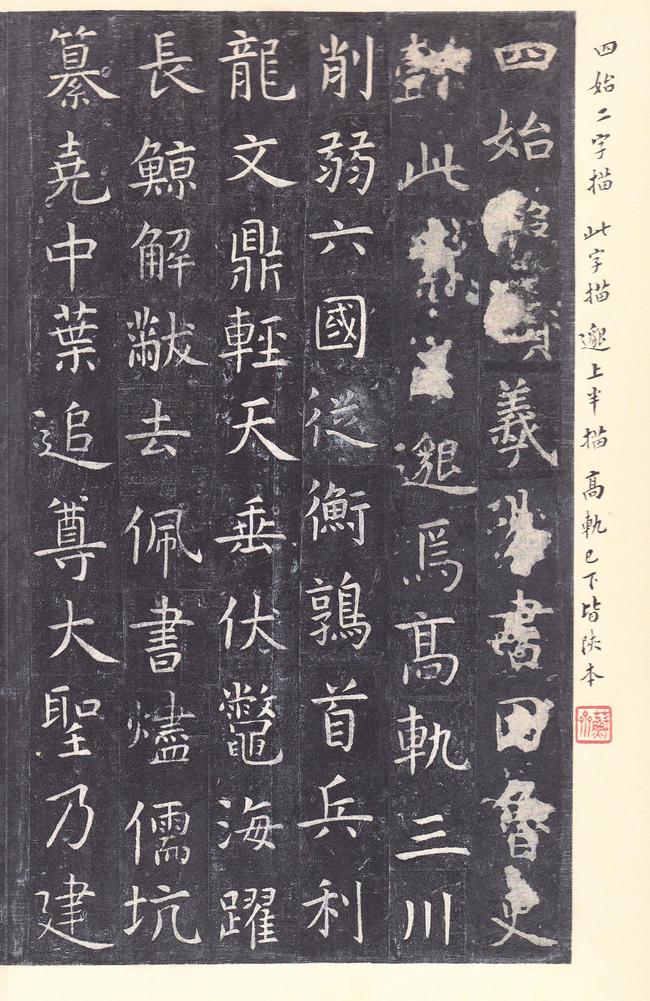 四始二字描 此字描 邈上半描 高軌已下皆陝本
四始義書因魯史
懿此邈焉高軌三川
削弱六國從衡鶉首兵利
龍文鼎輕天垂伏鼈海躍
長鯨解黻去佩書燼儒坑
纂堯中葉追尊大聖乃建